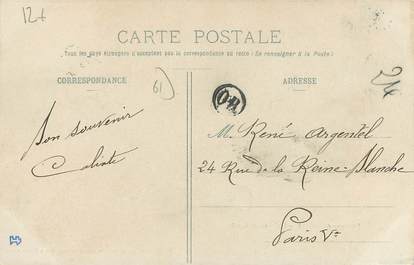 12+
CARTE POSTALE
Tous les pays étrangers n'acceptent pas la correspondance au recto (Se renseigner à la Poste)
CORRESPONDANCE
ADRESSE
61
OM
Bon souvenir
M. René Argentel
24 Rue de la Reine-Blanche
Paris Ve